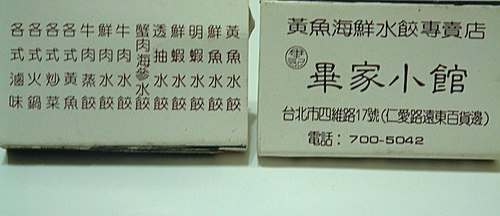 黃魚水餃
鮮魚水餃
明蝦水餃
鮮蝦水餃
透抽水餃
蟹肉海參水餃
牛肉水餃
鮮肉水餃
牛肉蒸餃
各式黃魚
各式炒菜
各式火鍋
各式滷味
黃魚海鮮水餃專賣店
畢家小館
台北市四維路17號(仁愛路遠東百貨邊)
電話：700-5042